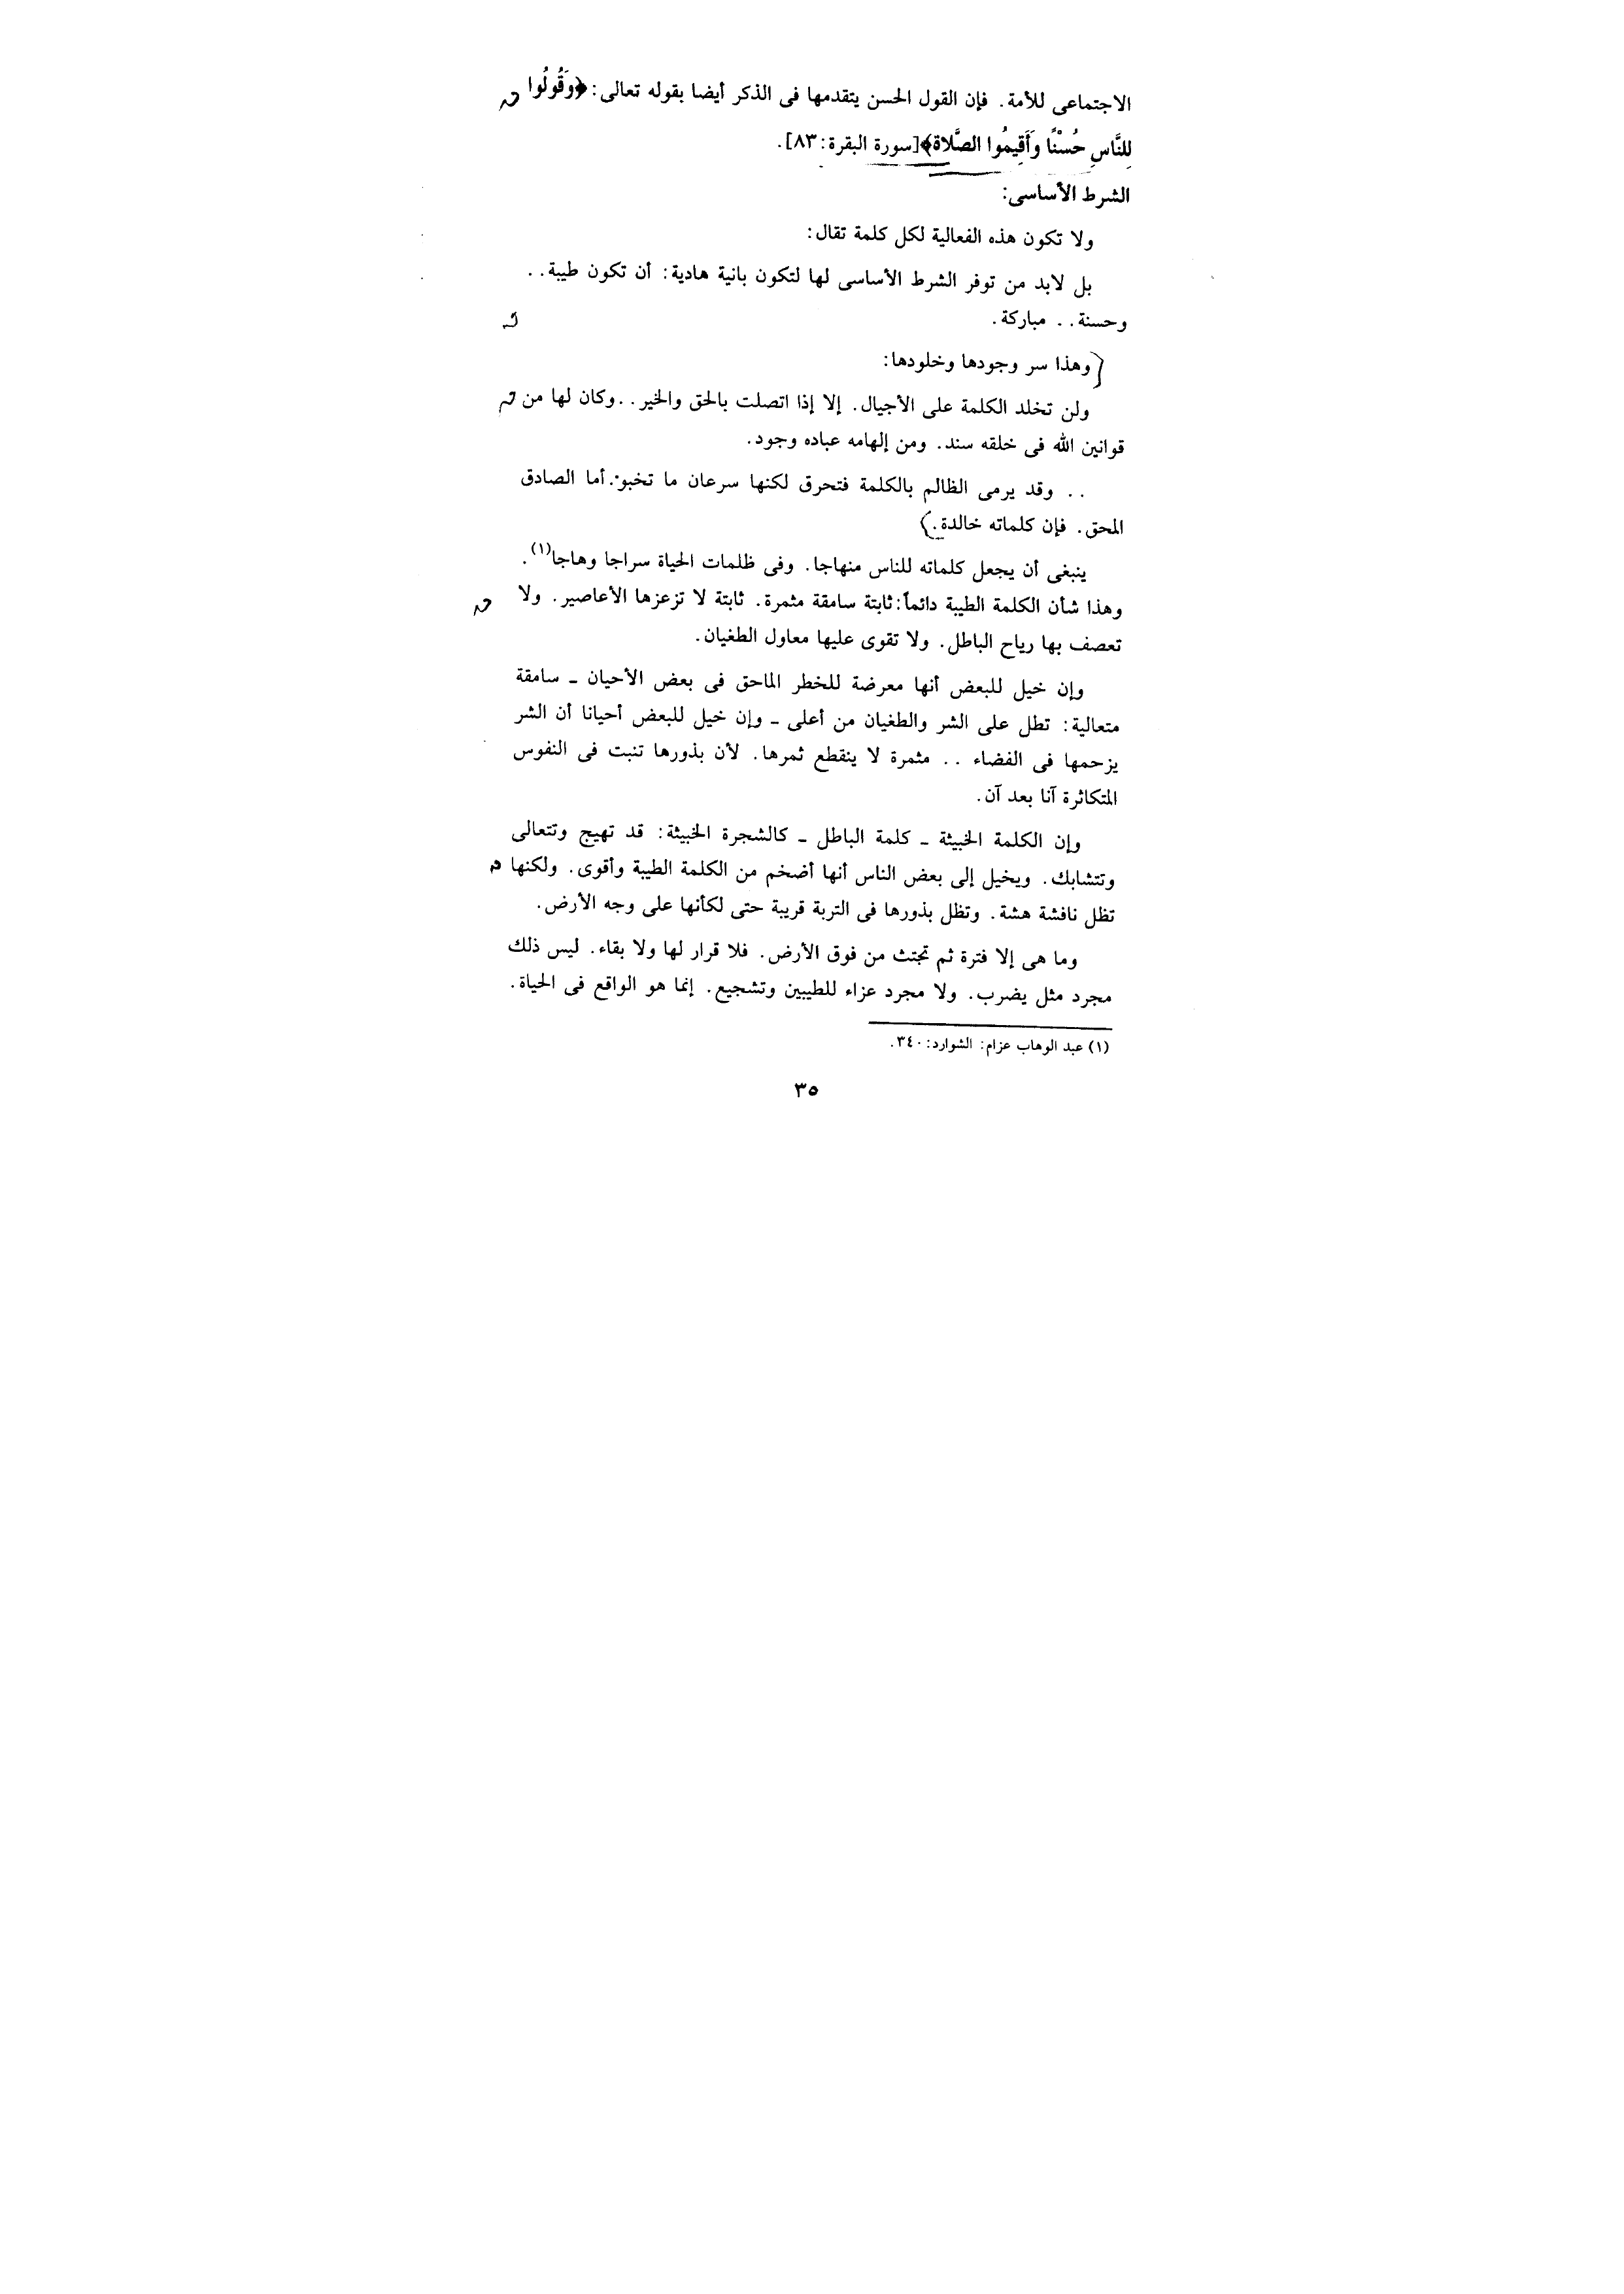 الاجتماعى للأمة. فإن القول الحسن يتقدمها فى الذكر أيضا بقوله تعالى: ﴿وَقُولُوا
لِلنَّاسِ حُسْنًا وَأَقِيمُوا الصَّلَاة﴾[سورة البقرة: ٨٣].
الشرط الأساسى:
ولا تكون هذه الفعالية لكل كلمة تقال:
بل لابد من توفر الشرط الأساسى لها لتكون بانية هادية: أن تكون طيبة..
وحسنة.. مباركة.
(وهذا سر وجودها وخلودها:
ولن تخلد الكلمة على الأجيال. إلا إذا اتصلت بالحق والخير.. وكان لها من
قوانين الله فى خلقه سند. ومن إلهامه عباده وجود.
.. وقد يرمى الظالم بالكلمة فتحرق لكنها سرعان ما تخبو. أما الصادق
المحق. فإن كلماته خالدة.)
ينبغى أن يجعل كلماته للناس منهاجا. وفى ظلمات الحياة سراجا وهاجا(١).
وهذا شأن الكلمة الطيبة دائماً: ثابتة سامقة مثمرة. ثابتة لا تزعزها الأعاصير. ولا
تعصف بها رياح الباطل. ولا تقوى عليها معاول الطغيان.
وإن خيل للبعض أنها معرضة للخطر الماحق فى بعض الأحيان ـ سامقة
متعالية: تطل على الشر والطغيان من أعلى ـ وإن خيل للبعض أحيانا أن الشر
يزحمها فى الفضاء .. مثمرة لا ينقطع ثمرها. لأن بذورها تنبت فى النفوس
المتكاثرة آنا بعد آن.
وإن الكلمة الخبيثة ـ كلمة الباطل ـ كالشجرة الخبيثة: قد تهيج وتتعالى
وتتشابك. ويخيل إلى بعض الناس أنها أضخم من الكلمة الطيبة وأقوى. ولكنها
تظل نافشة هشة. وتظل بذورها فى التربة قريبة حتى لكأنها على وجه الأرض.
وما هى إلا فترة ثم تجتث من فوق الأرض. فلا قرار لها ولا بقاء. ليس ذلك
مجرد مثل يضرب. ولا مجرد عزاء للطيبين وتشجيع. إنما هو الواقع فى الحياة.
(١) عبد الوهاب عزام: الشوارد: ٣٤٠.
٣٥